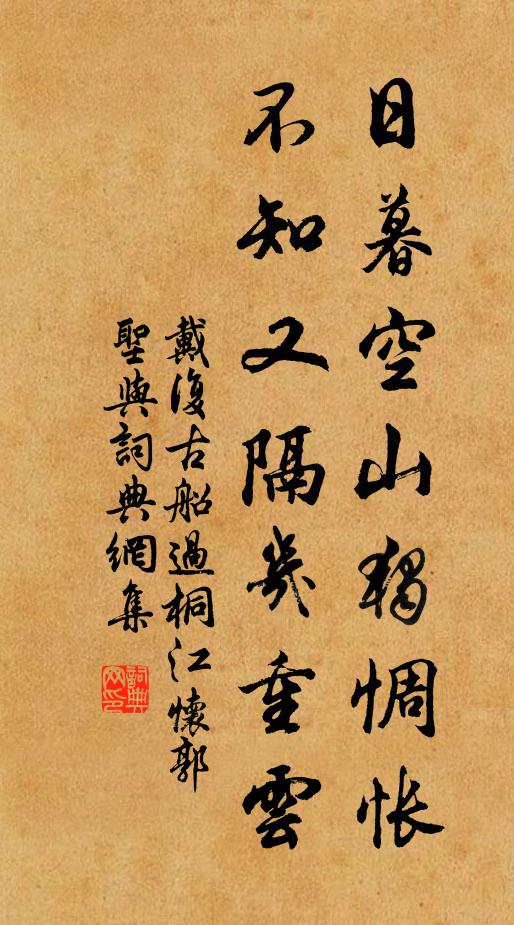 日暮空山獨惆悵
不知又隔幾重雲
戴復古船過桐江懷郭
聖與詞典網集
詞典
网印